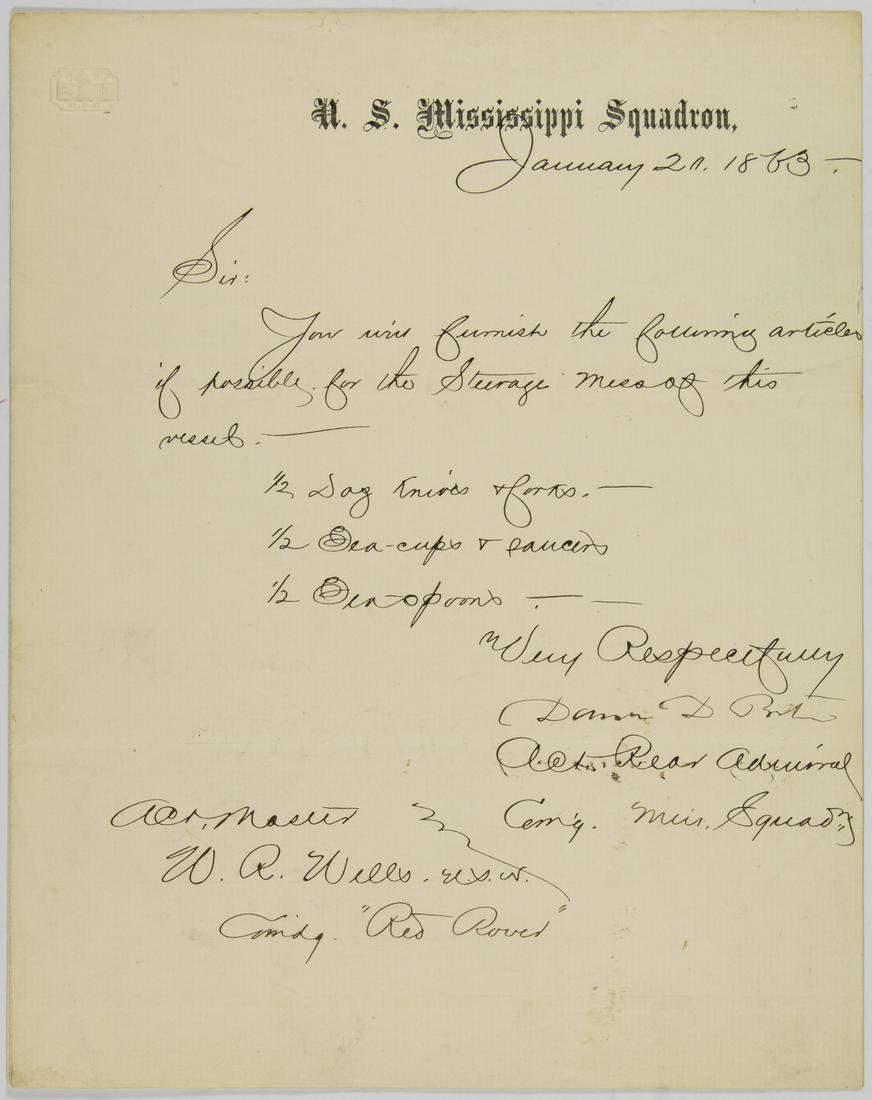 U. S. Mississippi Squadron,
January 21. 1863 -.
Sir:
You will furnish the following articles
if possible, for the Steerage Mess of this
vessel. —
1/2 Doz Knives & forks. —
1/2 Tea-cups & saucers
1/2 Tea spoons — —
Very Respectfully
David D Porter
Act. Rear Admiral
Com'g. Miss. Squad'n
Act. Master
W. R. Wells. U.S.N.
Comdg. "Red Rover"